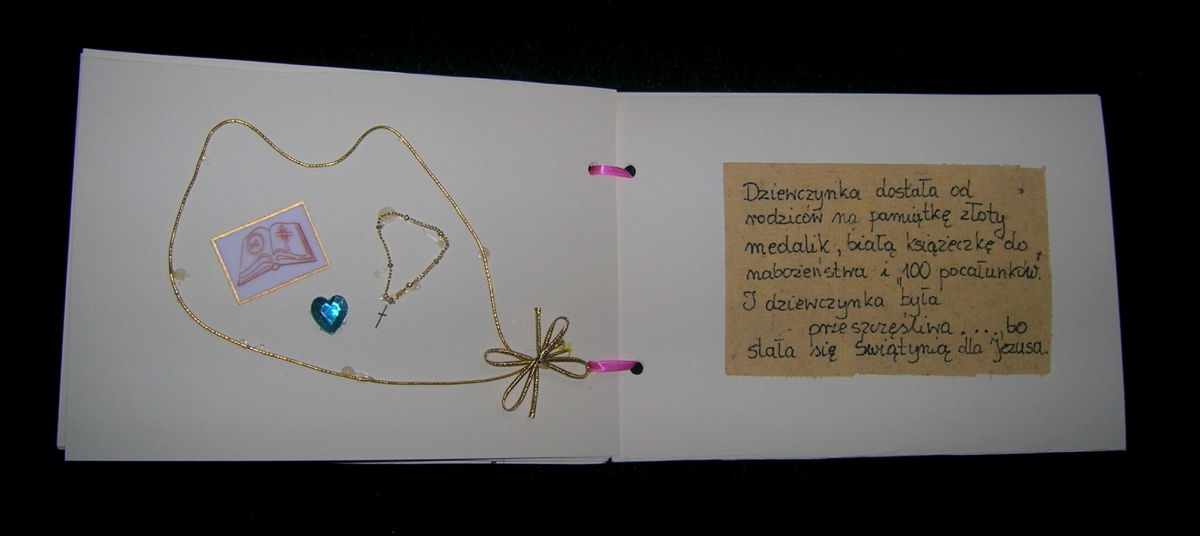 Dziewczynka dostała od
rodziców na pamiątkę złoty
medalik, białą książeczkę do
nabożeństwa i „100 pocałunków".
I dziewczynka była
przeszczęśliwa....,bo
stała się świątynią dla Jezusa.